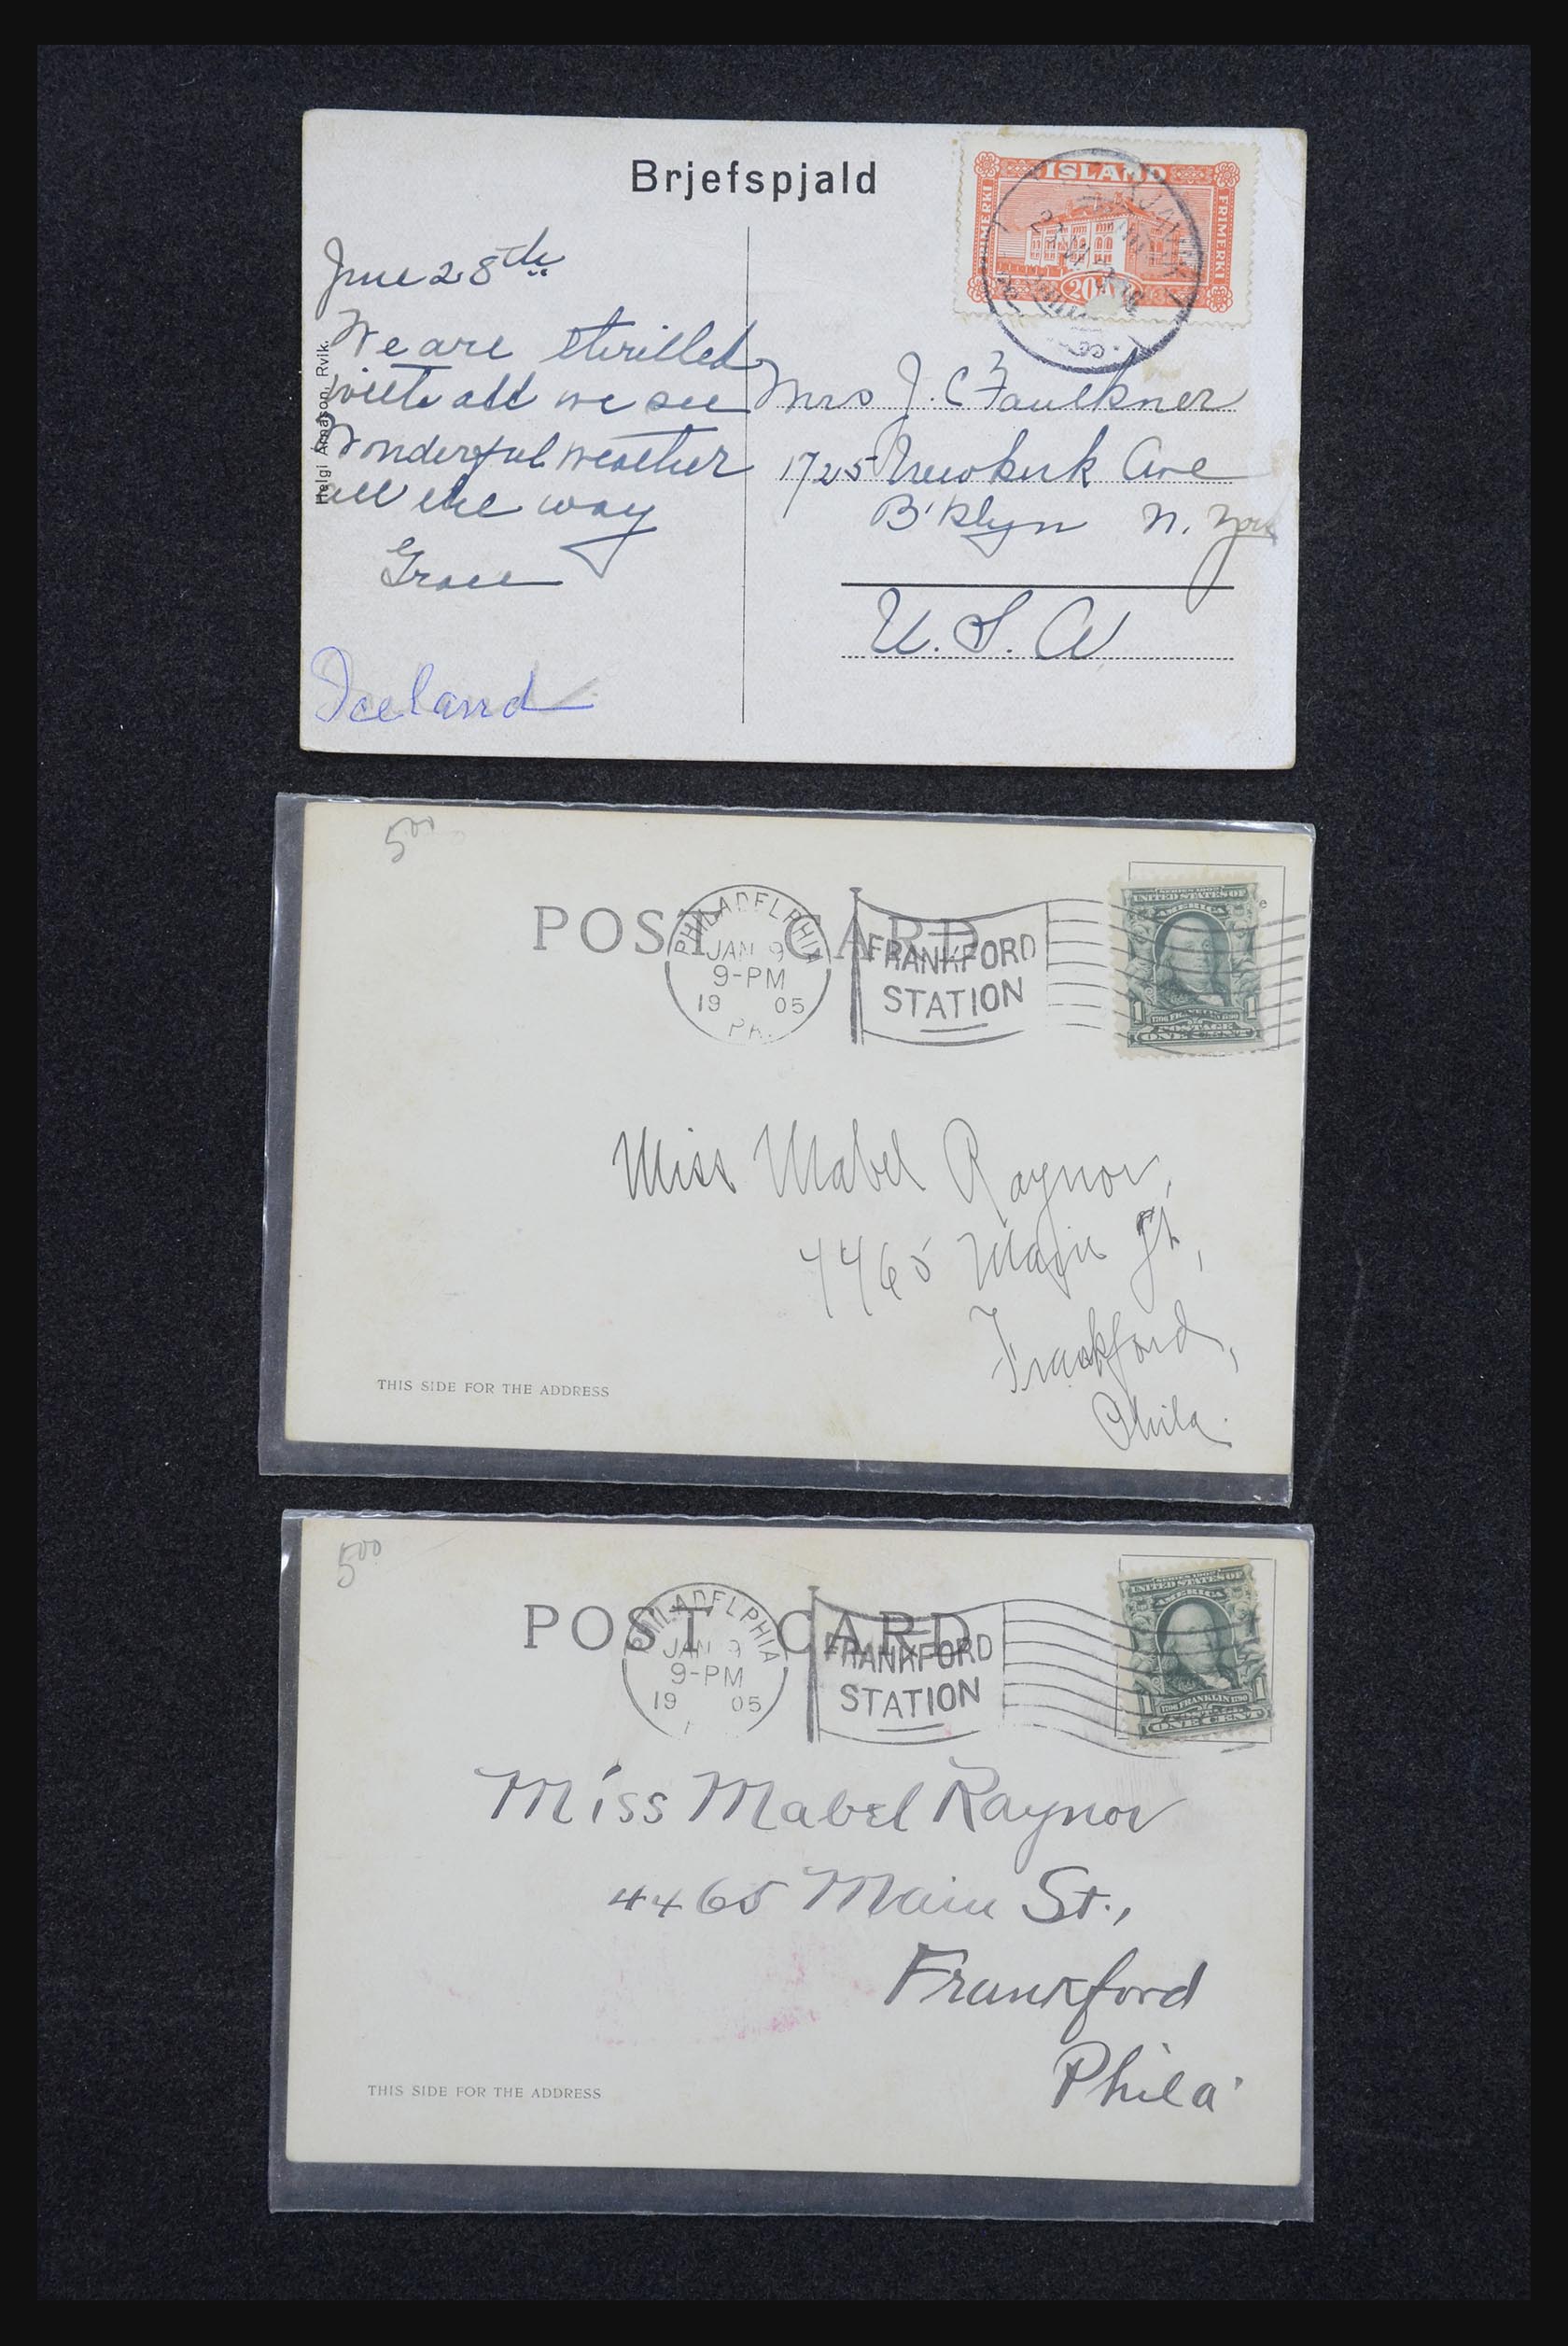 Brjefspjald
ÍSLAND
FRIMERKI
FRIMERKI
20
June 28th
We are thrilled
with all we see
Wonderful weather
all the way
Grace
Iceland
Helgi Árnason, Rvik.
Mrs J. C Faulkner
1725 Newkirk Ave
B'klyn N. York
U. S. A
500
POST CARD
PHILADELPHIA
JAN 9
9-PM
19 05
PA.
FRANKFORD
STATION
SERIES 1902
UNITED STATES OF
AMERICA
1 1
1706 FRANKLIN 1790
POSTAGE
ONE CENT
Miss Mabel Raynor,
4465 Main St,
Frankford,
Phila.
THIS SIDE FOR THE ADDRESS
500
POST CARD
PHILADELPHIA
JAN 9
9-PM
19 05
FRANKFORD
STATION
SERIES 1902
UNITED STATES OF
AMERICA
1 1
1706 FRANKLIN 1790
ONE CENT
Miss Mabel Raynor
4465 Main St.,
Frankford
Phila.
THIS SIDE FOR THE ADDRESS